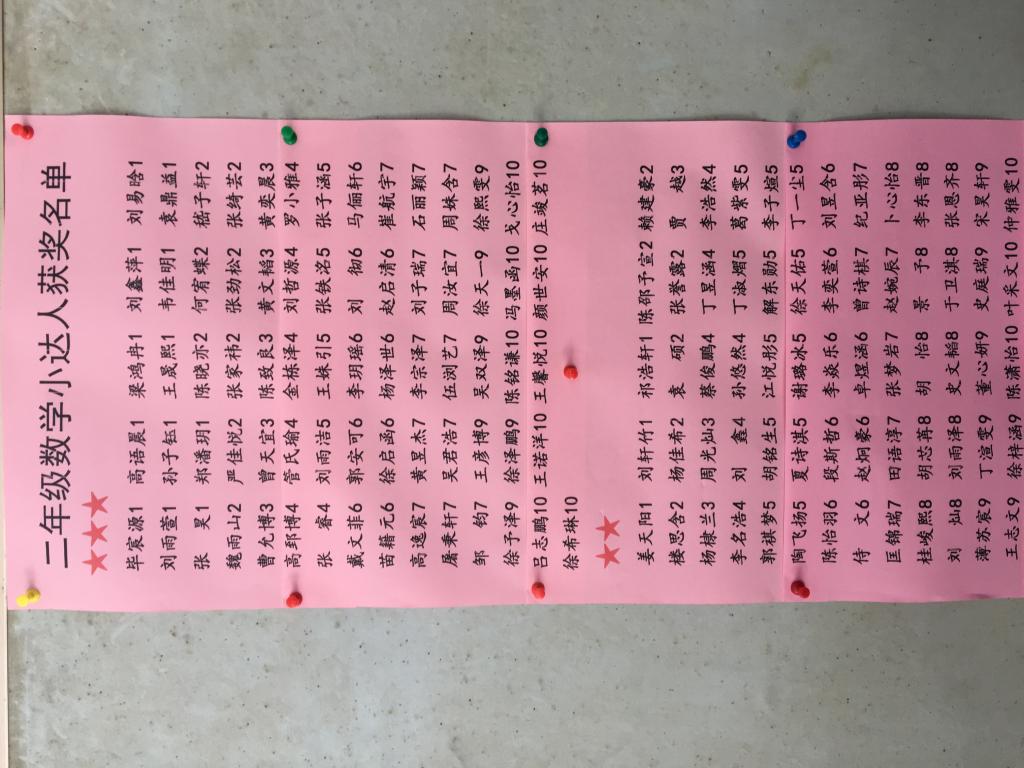 二年级数学小达人获奖名单
★★★
毕宸源1 高语晨1 梁鸿冉1 刘鑫萍1 刘易晗1
刘雨萱1 孙子钰1 王晟熙1 韦佳明1 袁鼎益1
张 昊1 郑潘玥1 陈晓亦2 何宥蝶2 嵇子轩2
魏雨山2 严佳悦2 张家祎2 张劲松2 张绮芸2
曹允博3 曾天宜3 陈致良3 黄文韬3 黄奕晨3
高郅博4 管氏瑜4 金栋泽4 刘哲源4 罗小雅4
张 睿4 刘雨洁5 王姝引5 张轶洺5 张子涵5
戴文菲6 郭安可6 李玥瑶6 刘 彻6 马俪轩6
苗籍元6 徐启函6 杨泽世6 赵启清6 崔航宇7
高逸宸7 黄昱杰7 李宗泽7 刘子瑞7 石丽颖7
屠秉轩7 吴君浩7 伍浏艺7 周汝宜7 周姝含7
邹 钧7 王彦博9 吴双泽9 徐天一9 徐熙雯9
徐予泽9 徐泽鹏9 陈铭谦10 冯墨函10 戈心怡10
吕志鹏10 王诺洋10 王馨悦10 颜世安10 庄竣茗10
徐布琳10
★★
姜天阳1 刘轩竹1 祁浩轩1 陈邵予宣2 赖建豪2
楼思含2 杨佳希2 袁 硕2 张誉露2 贾 越3
杨棣兰3 周光灿3 蔡俊鹏4 丁昱涵4 李浩然4
李名浩4 刘 鑫4 孙悠然4 丁淑媚5 葛紫雯5
郭祺梦5 胡铭生5 江悦彤5 解东勋5 李子煊5
陶飞扬5 夏诗淇5 谢璐冰5 徐天佑5 丁一尘5
陈怡羽6 段斯哲6 李焱乐6 李奕萱6 刘昱含6
侍 文6 赵炯豪6 卓煜涵6 曾诗棋7 纪亚彤7
匡锦瑞7 田语淳7 张梦岩7 赵婉辰7 卜心怡8
桂峻熙8 胡芯苒8 胡 怡8 景 予8 李东晋8
刘 灿8 刘雨泽8 史文韬8 于卫淇8 张恩齐8
薄苏宸9 丁渲雯9 董心妍9 史庭瑞9 宋昊轩9
王志文9 徐梓涵9 陈潇怡10 叶禾文10 仲雅雯10